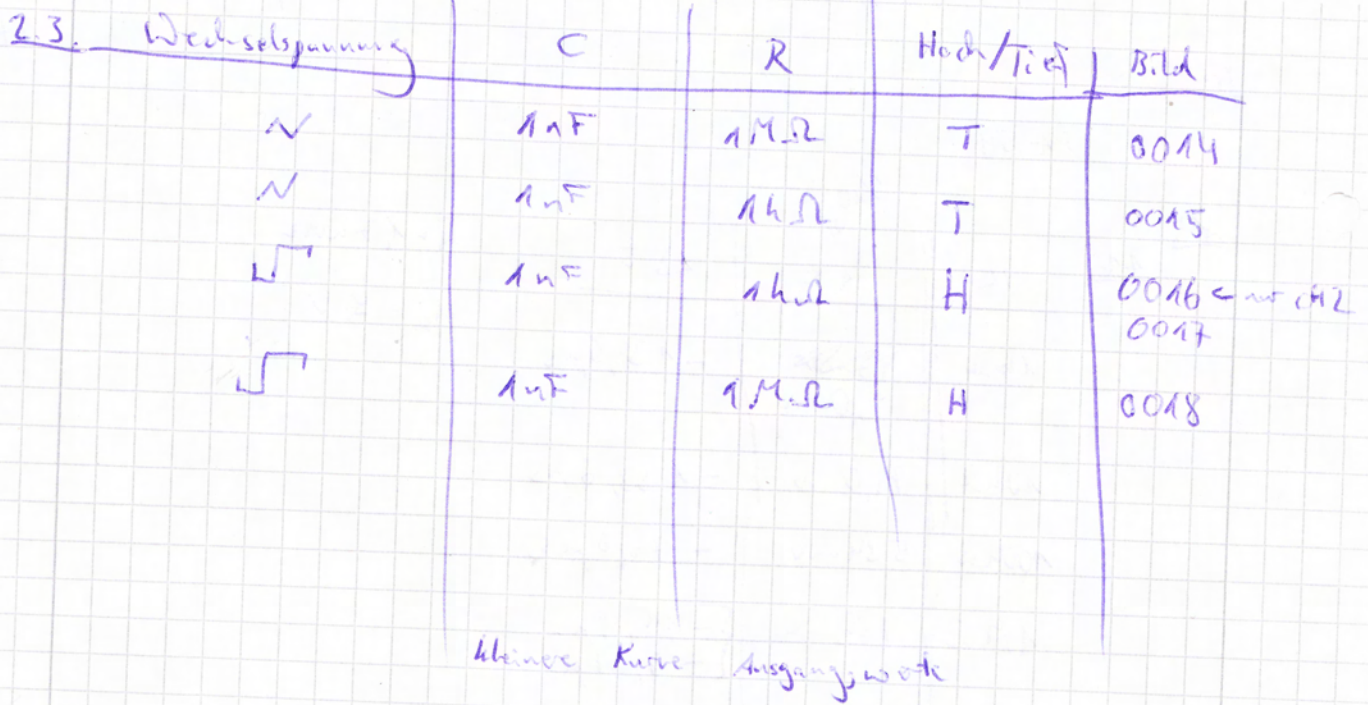 2.3. Wechselspannung C R Hoch/Tief Bild
1nF 1MΩ T 0014
1nF 1kΩ T 0015
1nF 1kΩ H 0016 ← nur CH2
0017
1nF 1MΩ H 0018
kleinere Kurve Ausgangswerte